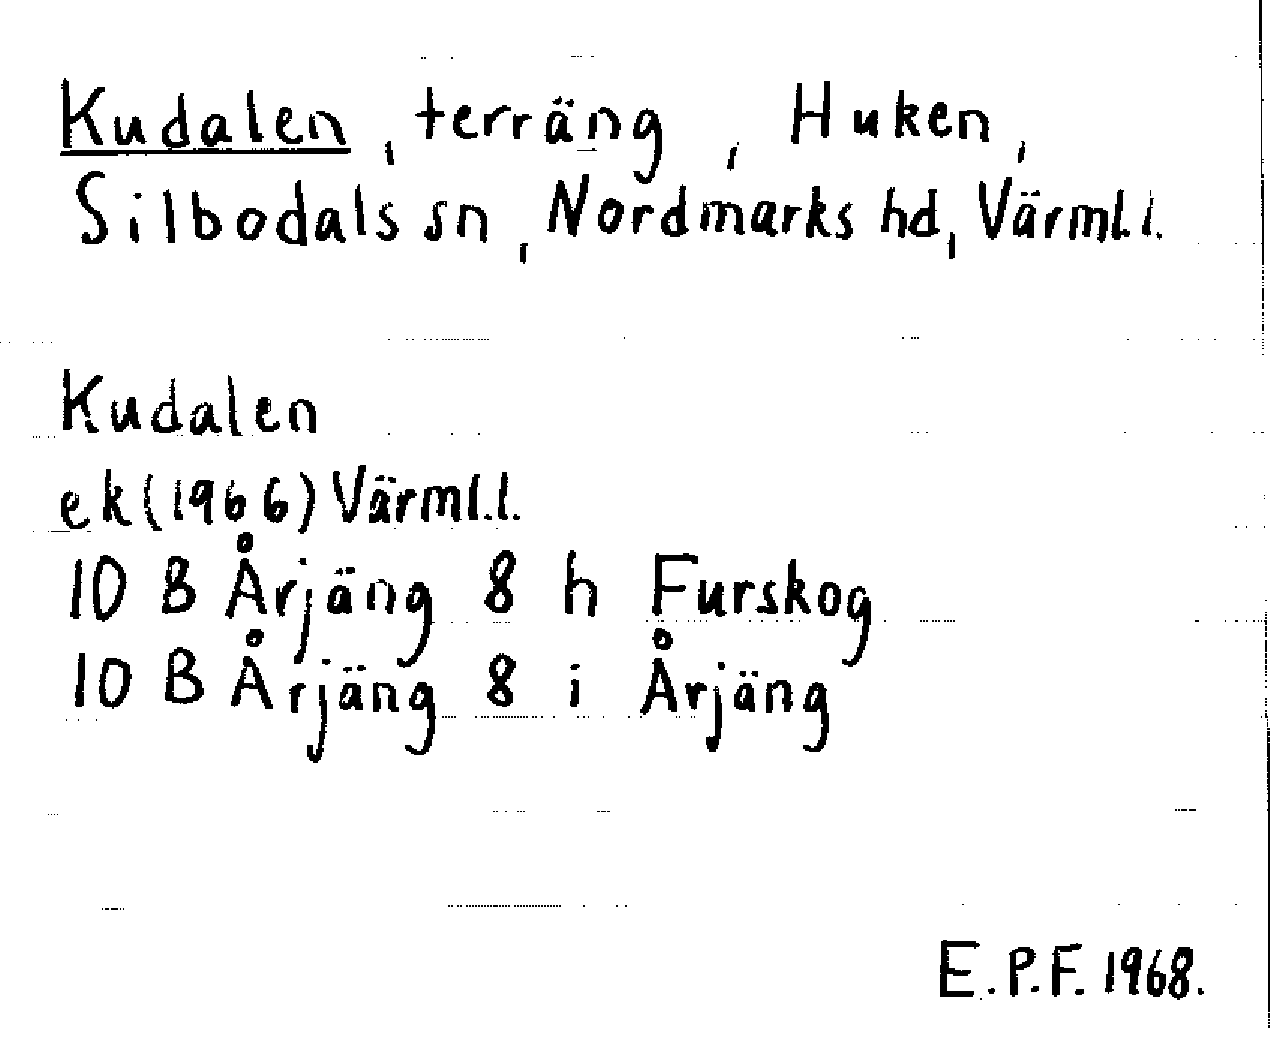 Kudalen, terräng, Huken,
Silbodals sn, Nordmarks hd, Värml.l.
Kudalen
ek (1966) Värml.l.
10 B Årjäng 8 h Furskog
10 B Årjäng 8 i Årjäng
E.P.F. 1968.